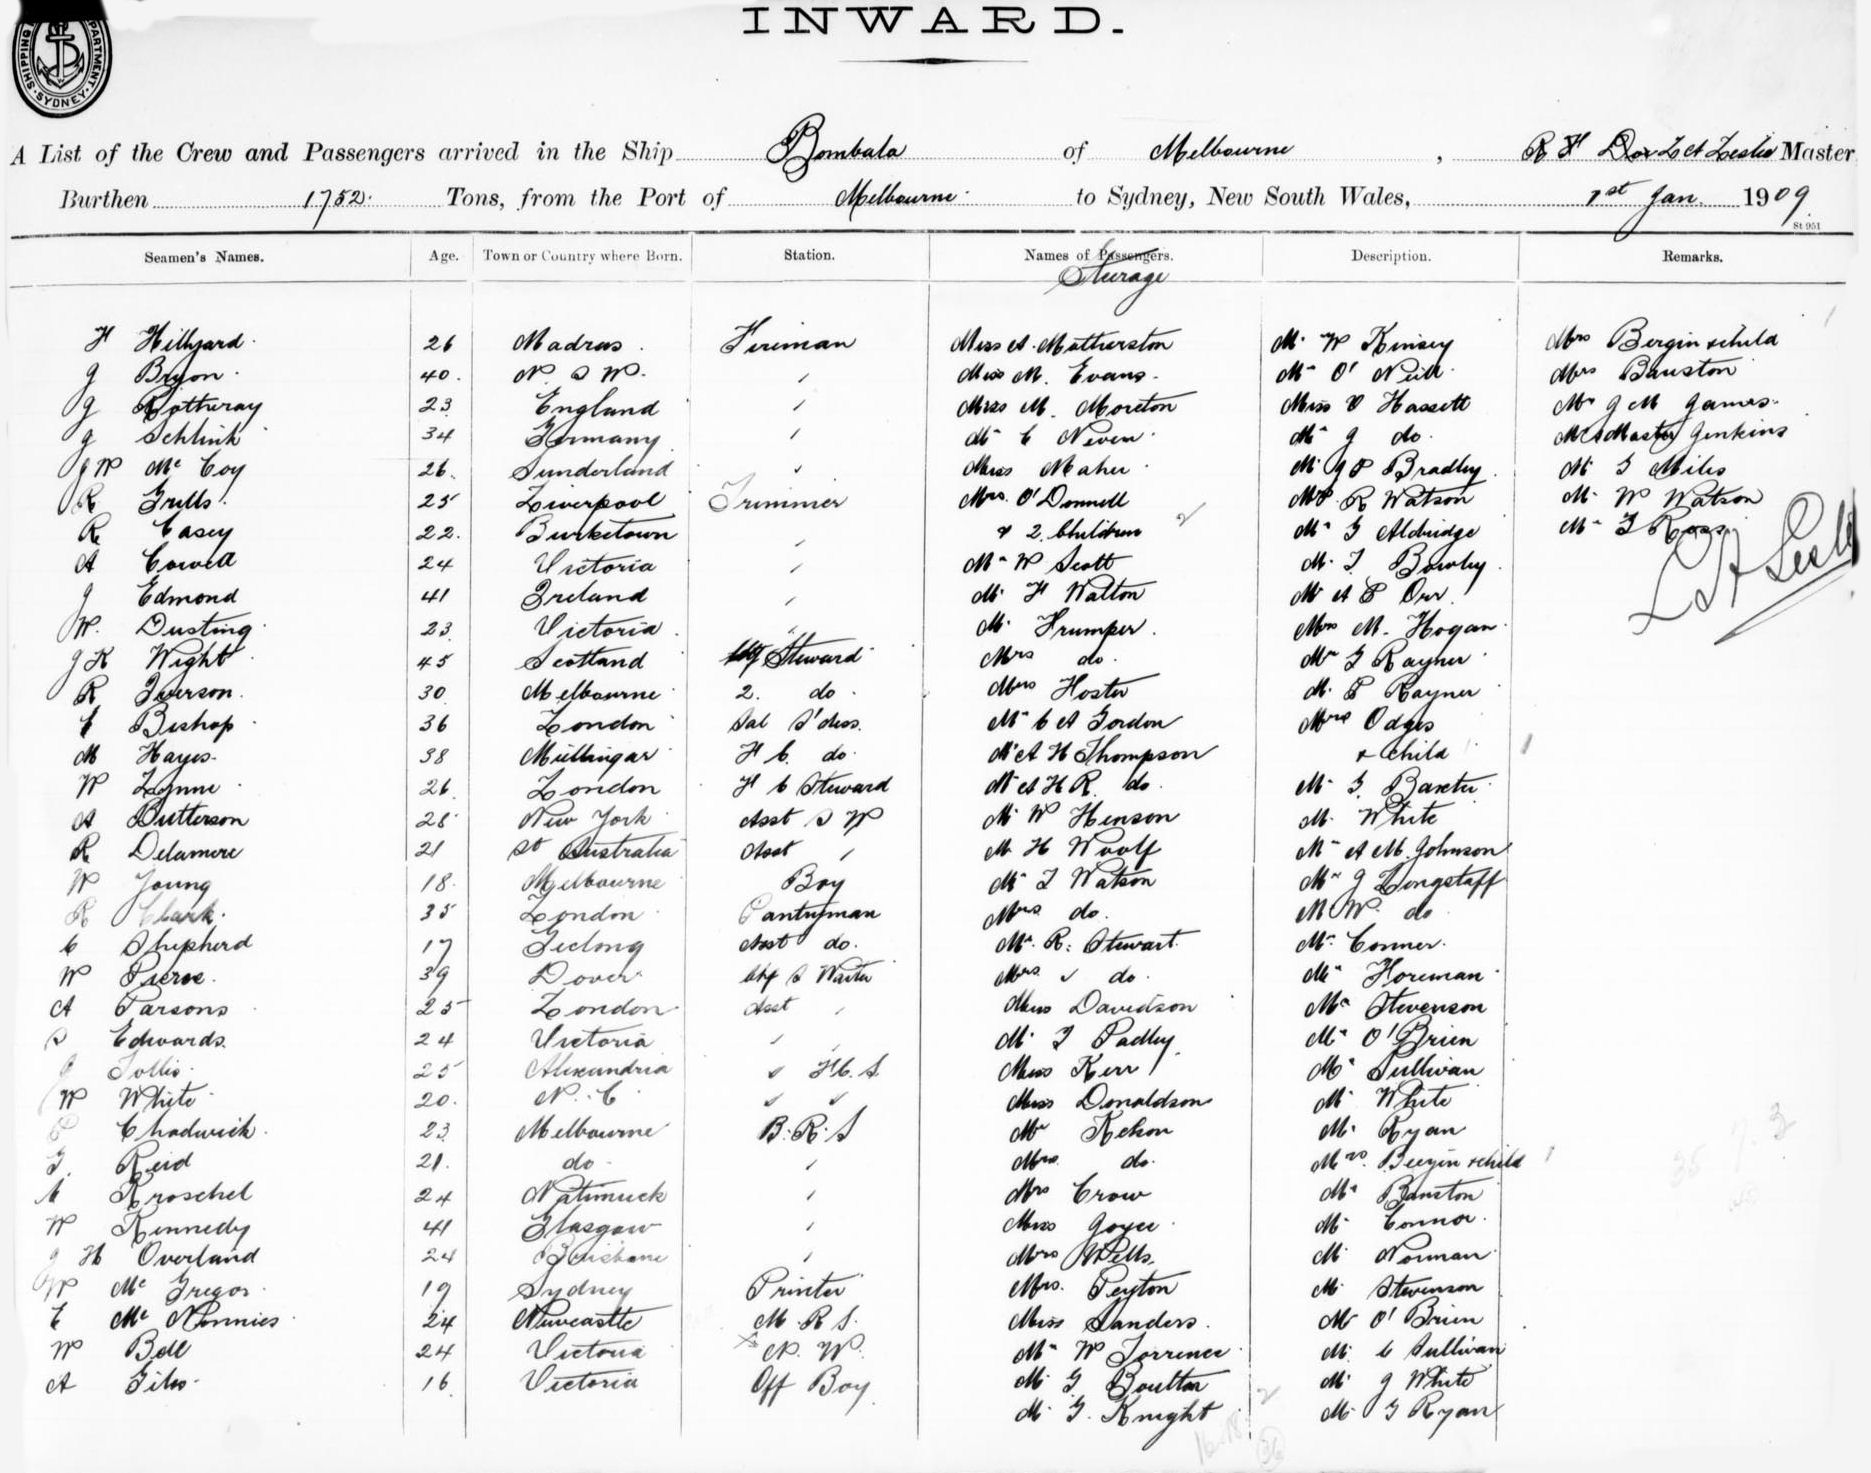 INWARD.
SHIPPING DEPARTMENT. SYDNEY.
A List of the Crew and Passengers arrived in the Ship Bombala of Melbourne, R F Dox L A Leslie Master
Burthen 1752 Tons, from the Port of Melbourne to Sydney, New South Wales, 1st Jan. 1909
St 951
Seamen's Names. Age. Town or Country where Born. Station. Names of Passengers. Description. Remarks.
Steerage
F Hillyard 26 Madras Fireman Miss A. Motherston Mr W Kinsey Mrs Bergin & child
J Bryon 40 N. S W. " Miss M. Evans Mr O'Neill Mrs Banston
J Rotheray 23 England " Miss M. Moreton Miss V Hassett Mr J M James
J Schlink 34 Germany " Mr C Neven Mr J do. Mr & Master Jenkins
J W McCoy 26 Sunderland " Miss Maher Mr J P Bradley Mr G Miles
R Grills 25 Liverpool Trimmer Mrs. O'Donnell Mr R Watson Mr W Watson
R Casey 22 Burketown " & 2 Children 2 Mr G Aldridge Mr G Ross
A Cowell 24 Victoria " Mr W Scott Mr T Bowley L A Leslie
J Edmond 41 Ireland " Mr F Walton Mr A E Orr
W. Dusting 23 Victoria " Mr Trumper Mrs M. Hogan
J K Wight 45 Scotland Chf Steward Mrs do. Mr G Rayner
R Iverson 30 Melbourne 2. do. Mrs Foster Mr P Rayner
C Bishop 36 London Sal S'dess. Mr C A Gordon Mrs Odges
M Hayes 38 Mullingar F C. do. Mr A H Thompson & child 1
W Lynne 26 London F C Steward Mr A H R. do. Mr G. Baxter
A Butterson 28 New York Asst S W Mr W Henson Mr White
R Delamere 21 St Australia Asst " Mr H Woolf Mr A M Johnson
W Young 18 Melbourne Boy Mr T Watson Mr J Longstaff
R Clark 35 London Pantryman Mrs do. Mr W. do
C Shepherd 17 Geelong Asst do. Mr. R. Stewart Mr. Conner
W Pierce 39 Dover Chf S Waiter Mrs " do. Mr Foreman
A Parsons 25 London Asst " Miss Davidson Mr Stevenson
S Edwards 24 Victoria " " Mr T Padley Mr O'Brien
J Tollis 25 Alexandria " F C. S. Miss Kerr Mr Sullivan
W White 20 N. C " " Miss Donaldson Mr White
Chadwick 23 Melbourne B. R. S Mr Kelson Mr Ryan
G. Reid 21 do. " Mrs do. Mrs. Bergin & child 1
C Kroschel 24 Natimuck " Mrs Crow Mr Banston
W Kennedy 41 Glasgow " Miss Joyce Mr Connor
J H Overland 24 Brisbane " Mrs Wells Mr Norman
W McGregor 19 Sydney Printer Mrs. Peyton Mr Stevenson
E Mc Nennies 24 Newcastle M R S. Miss Sanders Mr O'Brien
W Bell 24 Victoria N. W. Mr W Torrence Mr C Sullivan
A Giles 16 Victoria Off Boy Mr G Boulton Mr J White
Mr G. Knight Mr G Ryan